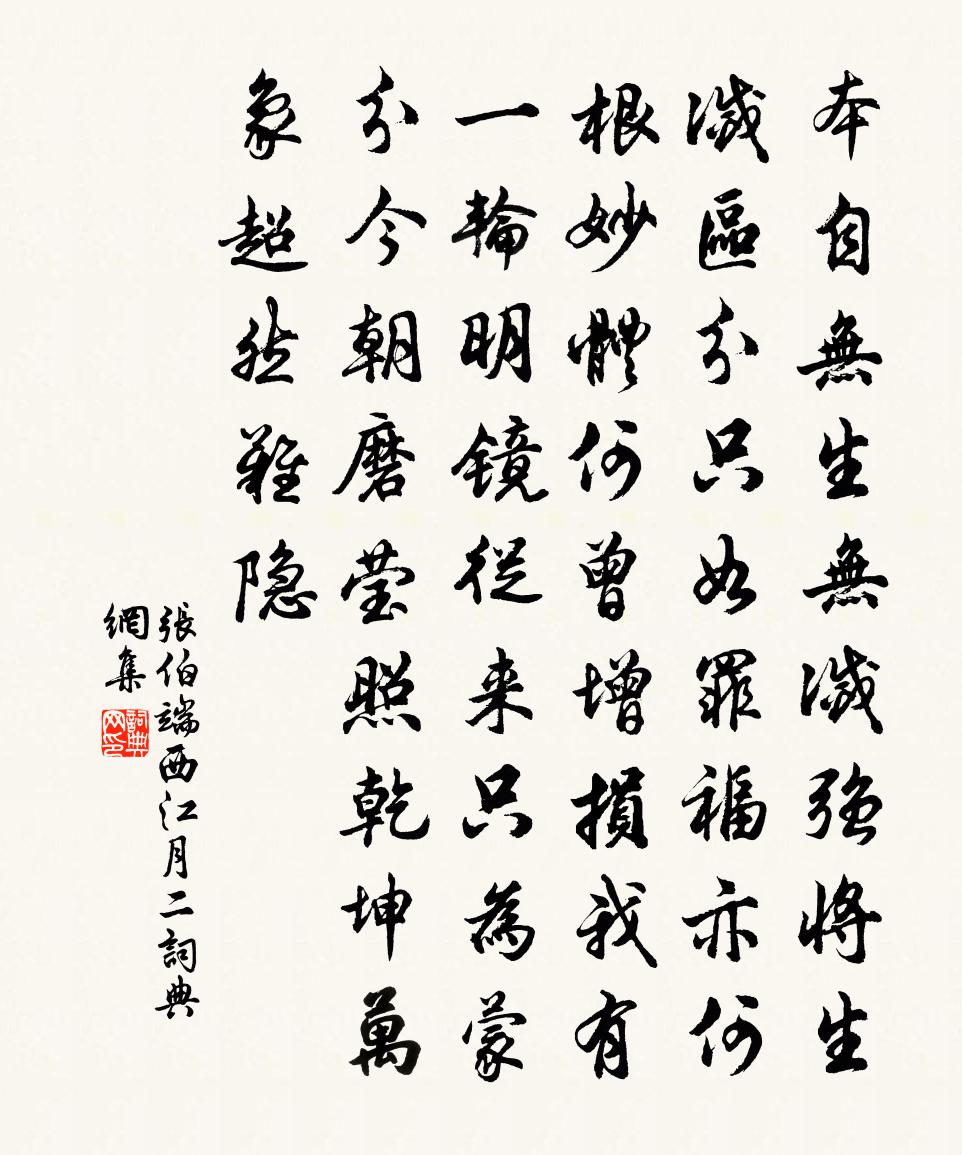 本自無生無滅強將生
滅區分只如罪福亦何
根妙體何曾增損我有
一輪明鏡從来只為蒙
分今朝磨莹照乾坤萬
象超然難隐
張伯端西江月二詞典
網集
詞典网印